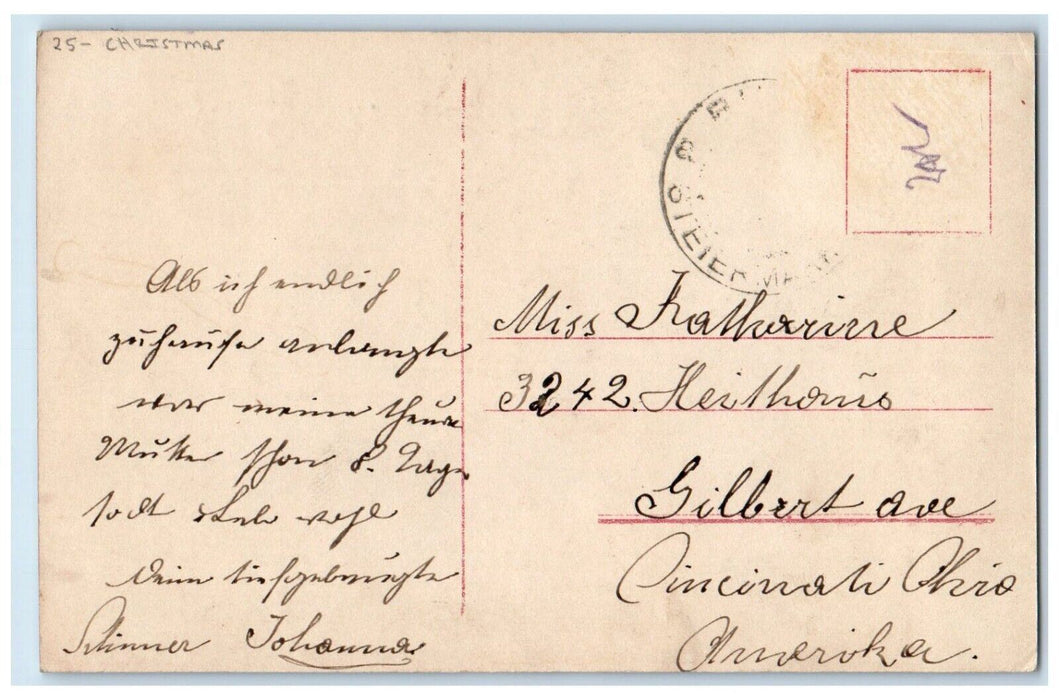 25- CHRISTMAS
STEIERMARK
Als ich endlich
zuhause anlangte
war meine theure
Mutter schon 8. Tage
todt Lebe wohl
Deine tiefgebeugte
Johanna
Miss Katharine
3242. Heithaus
Gilbert ave
Cincinnati Ohio
Amerika.